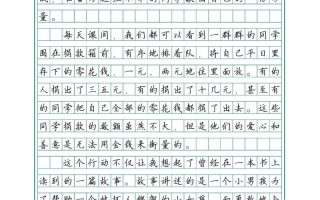 量。
每天课间，我们都可以看到一群群的同学
围在捐款箱前，有序地排着队，将自己平日里
存下的零花钱，一元两元地往里面放。有的
人捐出了三五元，有的人捐出了十几元，甚至有
的同学把自己全部的零花钱都捐了出去。这些
同学捐款的数额虽然不大，但是他们的爱心和
善意是无法用金钱来衡量的。
这个行动不仅让我想起了曾经在一本书上
读到的一篇故事。故事讲述的是一个小男孩为